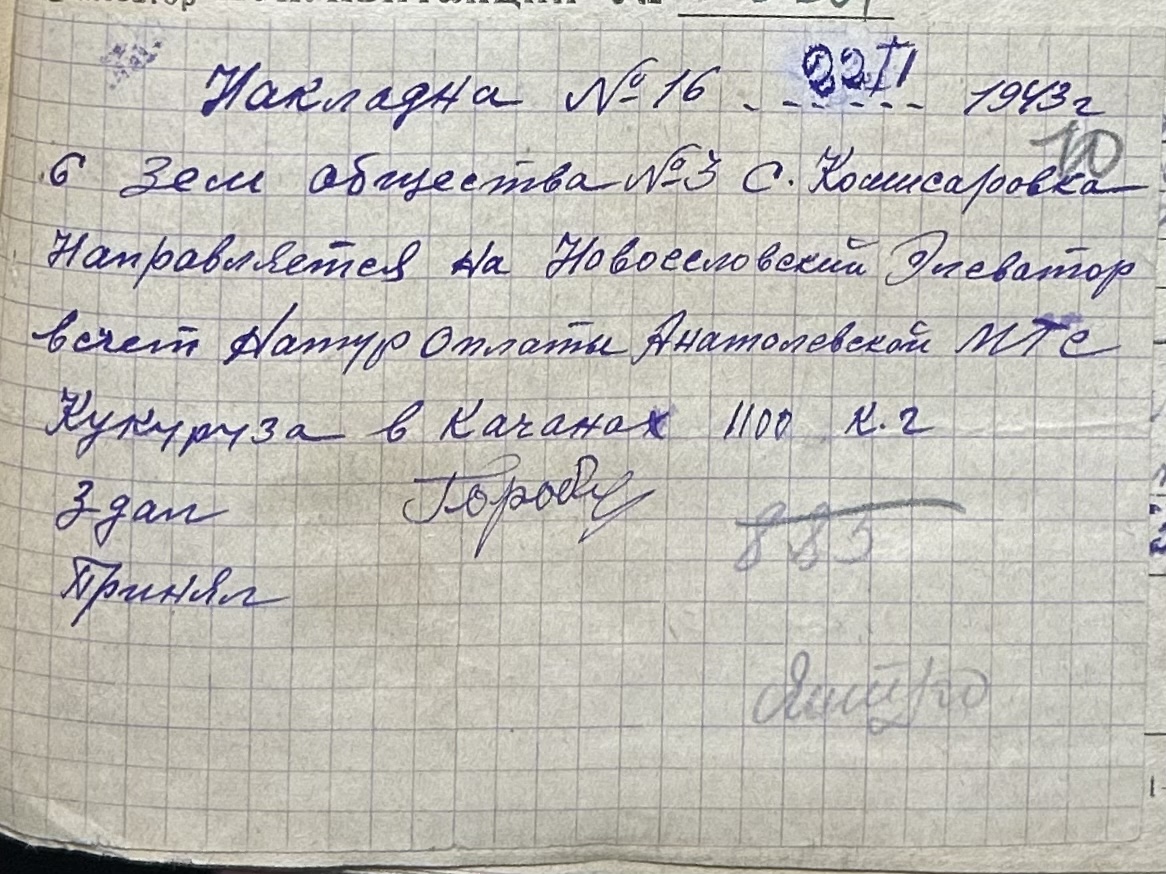 Накладна № 16 22 II 1943 г
10
6 Зем общества № 3 С. Комисаровка
Направляется на Новоселовский Элеватор
всчет Натур Оплаты Анатолевской МТС
Кукуруза в Качанах 1100 к.г
Здал
885
Принял